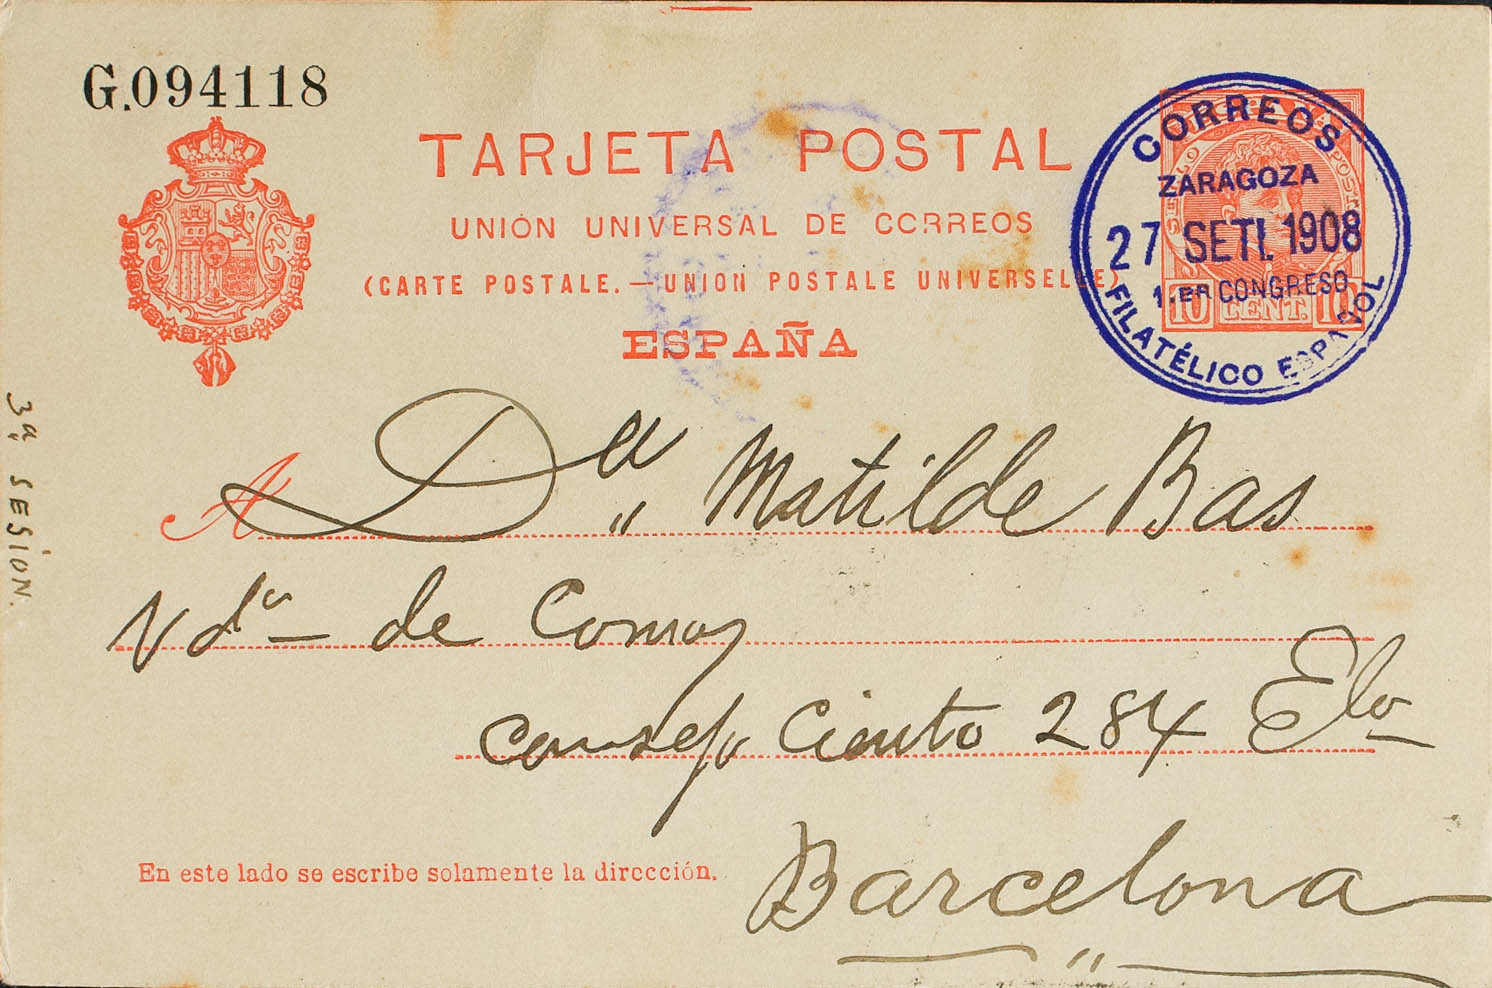 G.094118
TARJETA POSTAL
UNIÓN UNIVERSAL DE CORREOS
(CARTE POSTALE.—UNION POSTALE UNIVERSELLE)
ESPAÑA
CORREOS
ZARAGOZA
27 SETI. 1908
1.ER CONGRESO
FILATÉLICO ESPAÑOL
ESPAÑA
SELLO
POSTAL
10 CENT. 10
3ª SESION.
A Dª Matilde Bas
Vdª de Comas
Consejo Ciento 284
Barcelona
En este lado se escribe solamente la dirección.